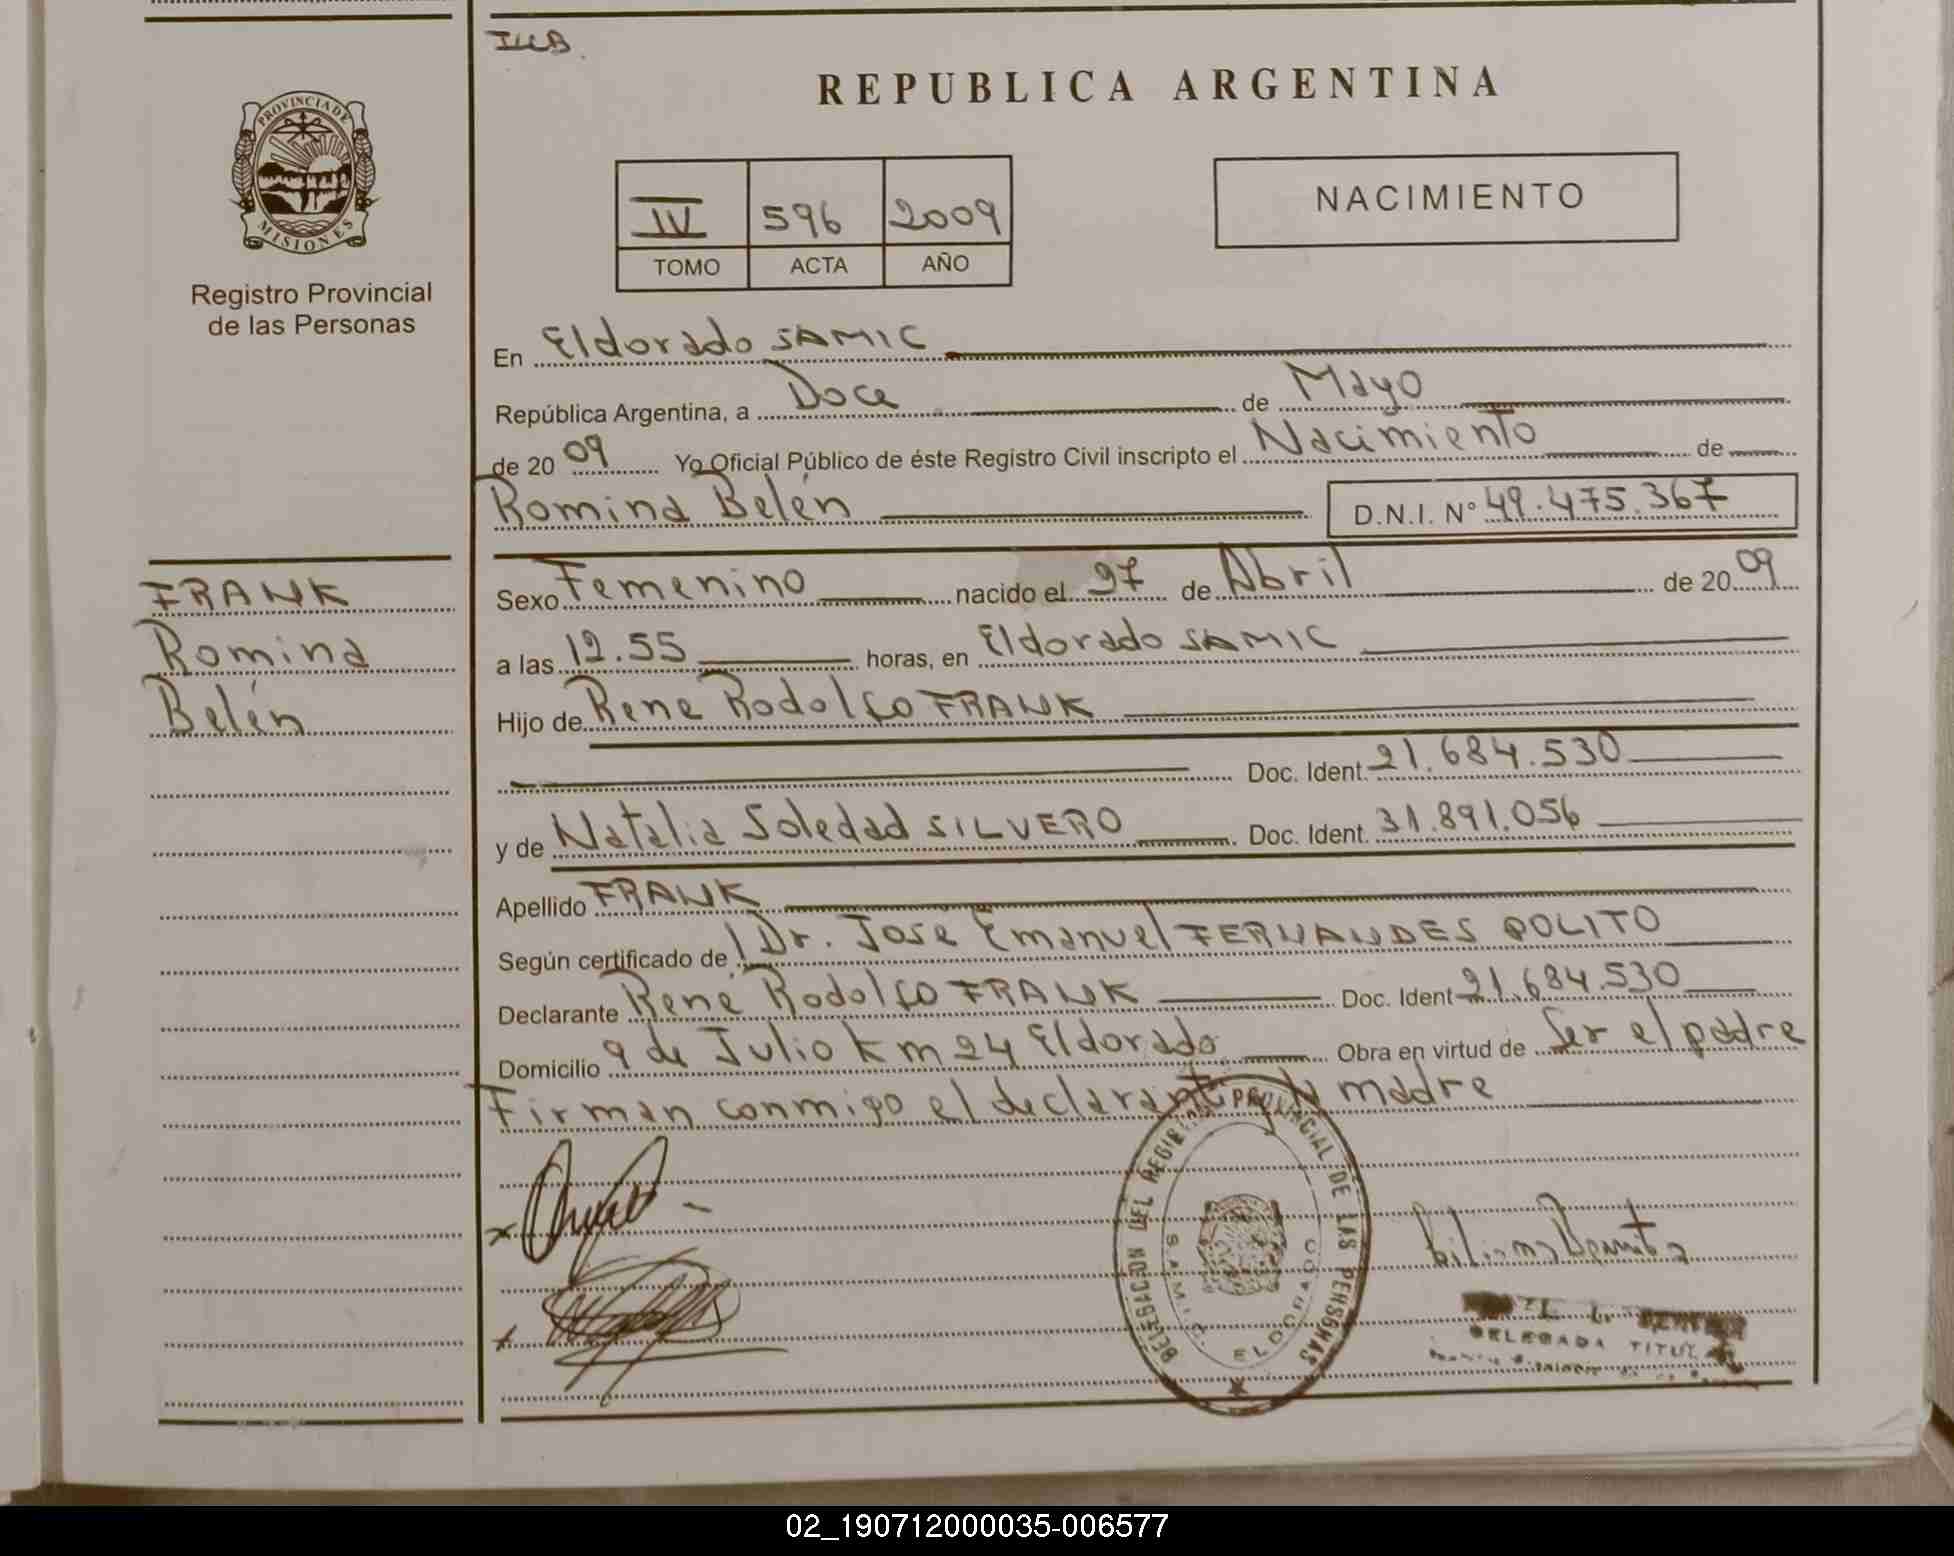 ILLB.
REPUBLICA ARGENTINA
PROVINCIA DE
MISIONES
Registro Provincial
de las Personas
IV 596 2009
TOMO ACTA AÑO
NACIMIENTO
En Eldorado SAMIC
República Argentina, a Doce de Mayo
de 2009 Yo Oficial Público de éste Registro Civil inscripto el Nacimiento de
Romina Belén D.N.I. N° 49.475.367
FRANK
Romina
Belén
Sexo Femenino nacido el 27 de Abril de 2009
a las 12.55 horas, en Eldorado SAMIC
Hijo de Rene Rodolfo FRANK
Doc. Ident. 21.684.530
y de Natalia Soledad SILVERO Doc. Ident. 31.891.056
Apellido FRANK
Según certificado de Dr. Jose Emanuel FERNANDES POLITO
Declarante René Rodolfo FRANK Doc. Ident 21.684.530
Domicilio 9 de Julio Km 24 Eldorado Obra en virtud de Ser el padre
Firman conmigo el declarante y la madre
DELEGACION DEL REGISTRO PROVINCIAL DE LAS PERSONAS
S.A.M.I.C. ELDORADO
DELEGADA TITULAR
02_190712000035-006577